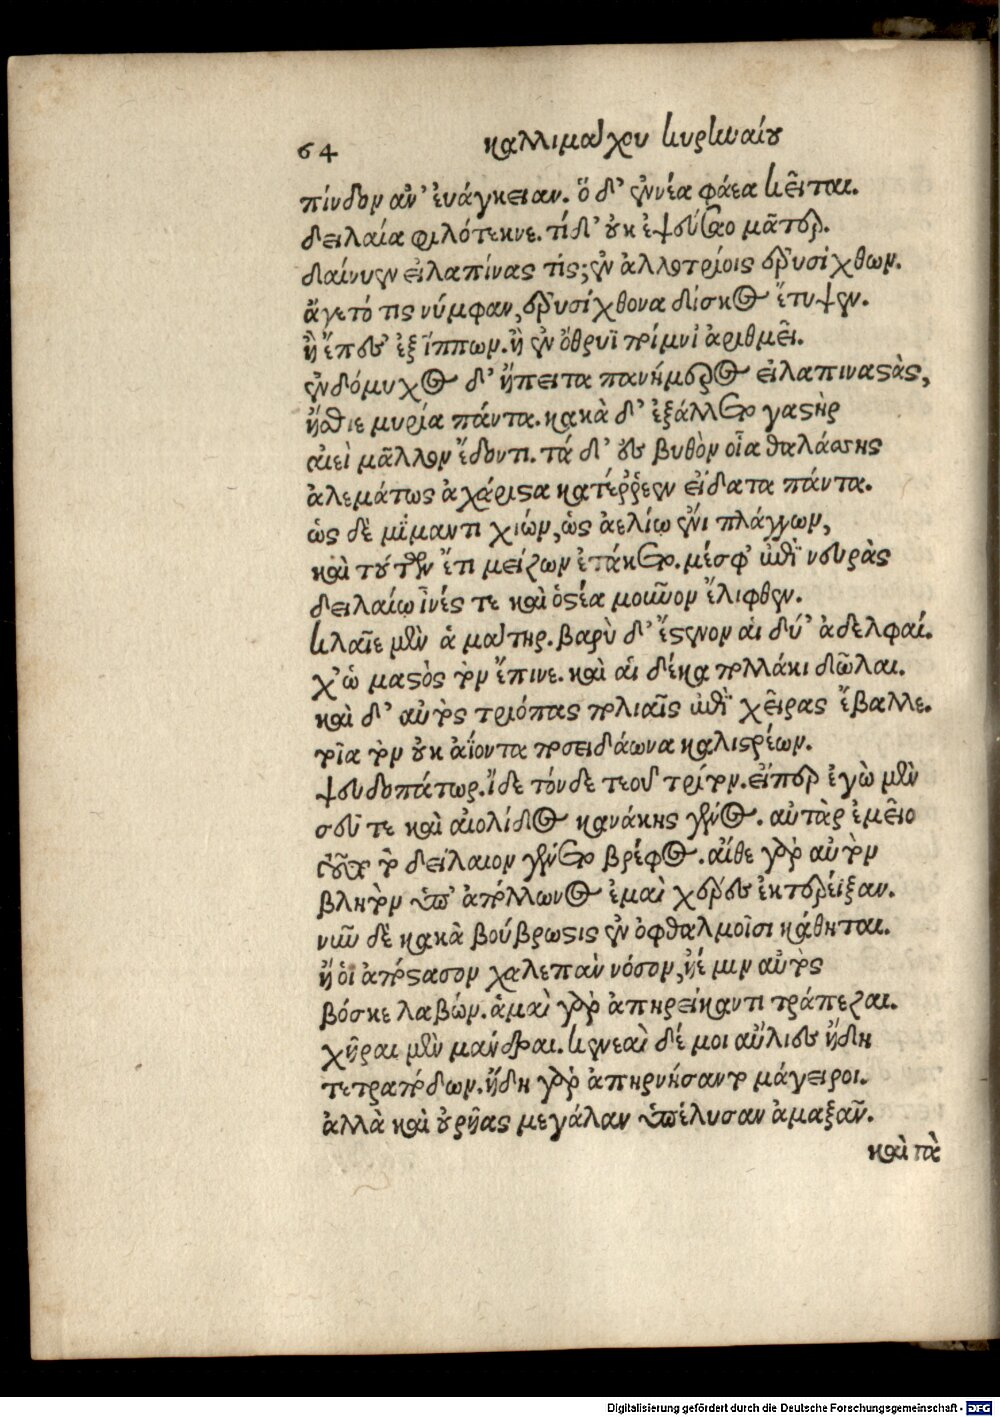 64 καλλιμάχου κυρηναίου
πίνδον ἀν' ἐυάγκειαν. ὅ δ' ἐννέα φάεα κεῖται.
δειλαία φιλότεκνε. τί δ' οὐκ ἐψεύσαο μᾶτερ.
δαίνυεν εἰλαπίνας τίς; ἐν ἀλλοτρίοις ἐρυσίχθων.
ἄγετό τις νύμφαν, ἐρυσίχθονα δίσκος ἔτυψεν.
ἢ ἔπεσ' ἐξ ἵππων. ἢ ἐν ὄθρυϊ ποίμνι ἀριθμεῖ.
ἐνδόμυχος δ' ἤπειτα πανήμερος εἰλαπιναστὰς,
ἤσθιε μυρία πάντα. κακὰ δ' ἐξάλλετο γαστὴρ
αἰεὶ μᾶλλον ἔδοντι. τά δ' ἐς βυθὸν οἷα θαλάσσης
ἀλεμάτως ἀχάριστα κατέρρεεν εἴδατα πάντα.
ὡς δὲ μίμαντι χιών, ὡς ἀελίῳ ἔνι πλάγγων,
καὶ τούτων ἔτι μείζων ἐτάκετο. μέσφ' ἐπὶ νευρὰς
δειλαίῳ ἶνές τε καὶ ὀστέα μοῦνον ἔλιφθεν.
κλαῖε μὲν ἁ μάτηρ. βαρὺ δ' ἔστενον αἱ δύ' ἀδελφαί.
χ' ὡ μαστὸς τὸν ἔπινε. καὶ αἱ δέκα πολλάκι δῶλαι.
καὶ δ' αὐτὸς τριόπας πολιαῖς ἐπὶ χεῖρας ἔβαλλε.
τοῖα τὸν οὐκ ἀΐοντα ποσειδάωνα καλιστρέων.
ψευδοπάτωρ. ἴδε τόνδε τεοῦ τρίτον. εἴπερ ἐγὼ μὲν
σεῦ τε καὶ αἰολίδος κανάκης γένος. αὐτὰρ ἐμεῖο
τοῦτο τὸ δείλαιον γένετο βρέφος. αἴθε γὰρ αὐτὸν
βλητὸν ὑπ' ἀπόλλωνος ἐμαὶ χέρες ἐκτερέϊξαν.
νῦν δὲ κακὰ βούβρωστις ἐν ὀφθαλμοῖσι κάθηται.
ἤ οἱ ἀπόστασον χαλεπὰν νόσον, ἠέ μιν αὐτὸς
βόσκε λαβών. ἁμαὶ γὰρ ἀπηρείκαντι τράπεζαι.
χῆραι μὲν μάνδραι. κενεαὶ δέ μοι αὔλιες ἤδη
τετραπόδων. ἤδη γὰρ ἀπηρνήσαντο μάγειροι.
ἀλλὰ καὶ οὐρῆας μεγάλαν ὑπέλυσαν ἁμαξᾶν.
καὶ τὰ
Digitalisierung gefördert durch die Deutsche Forschungsgemeinschaft - DFG